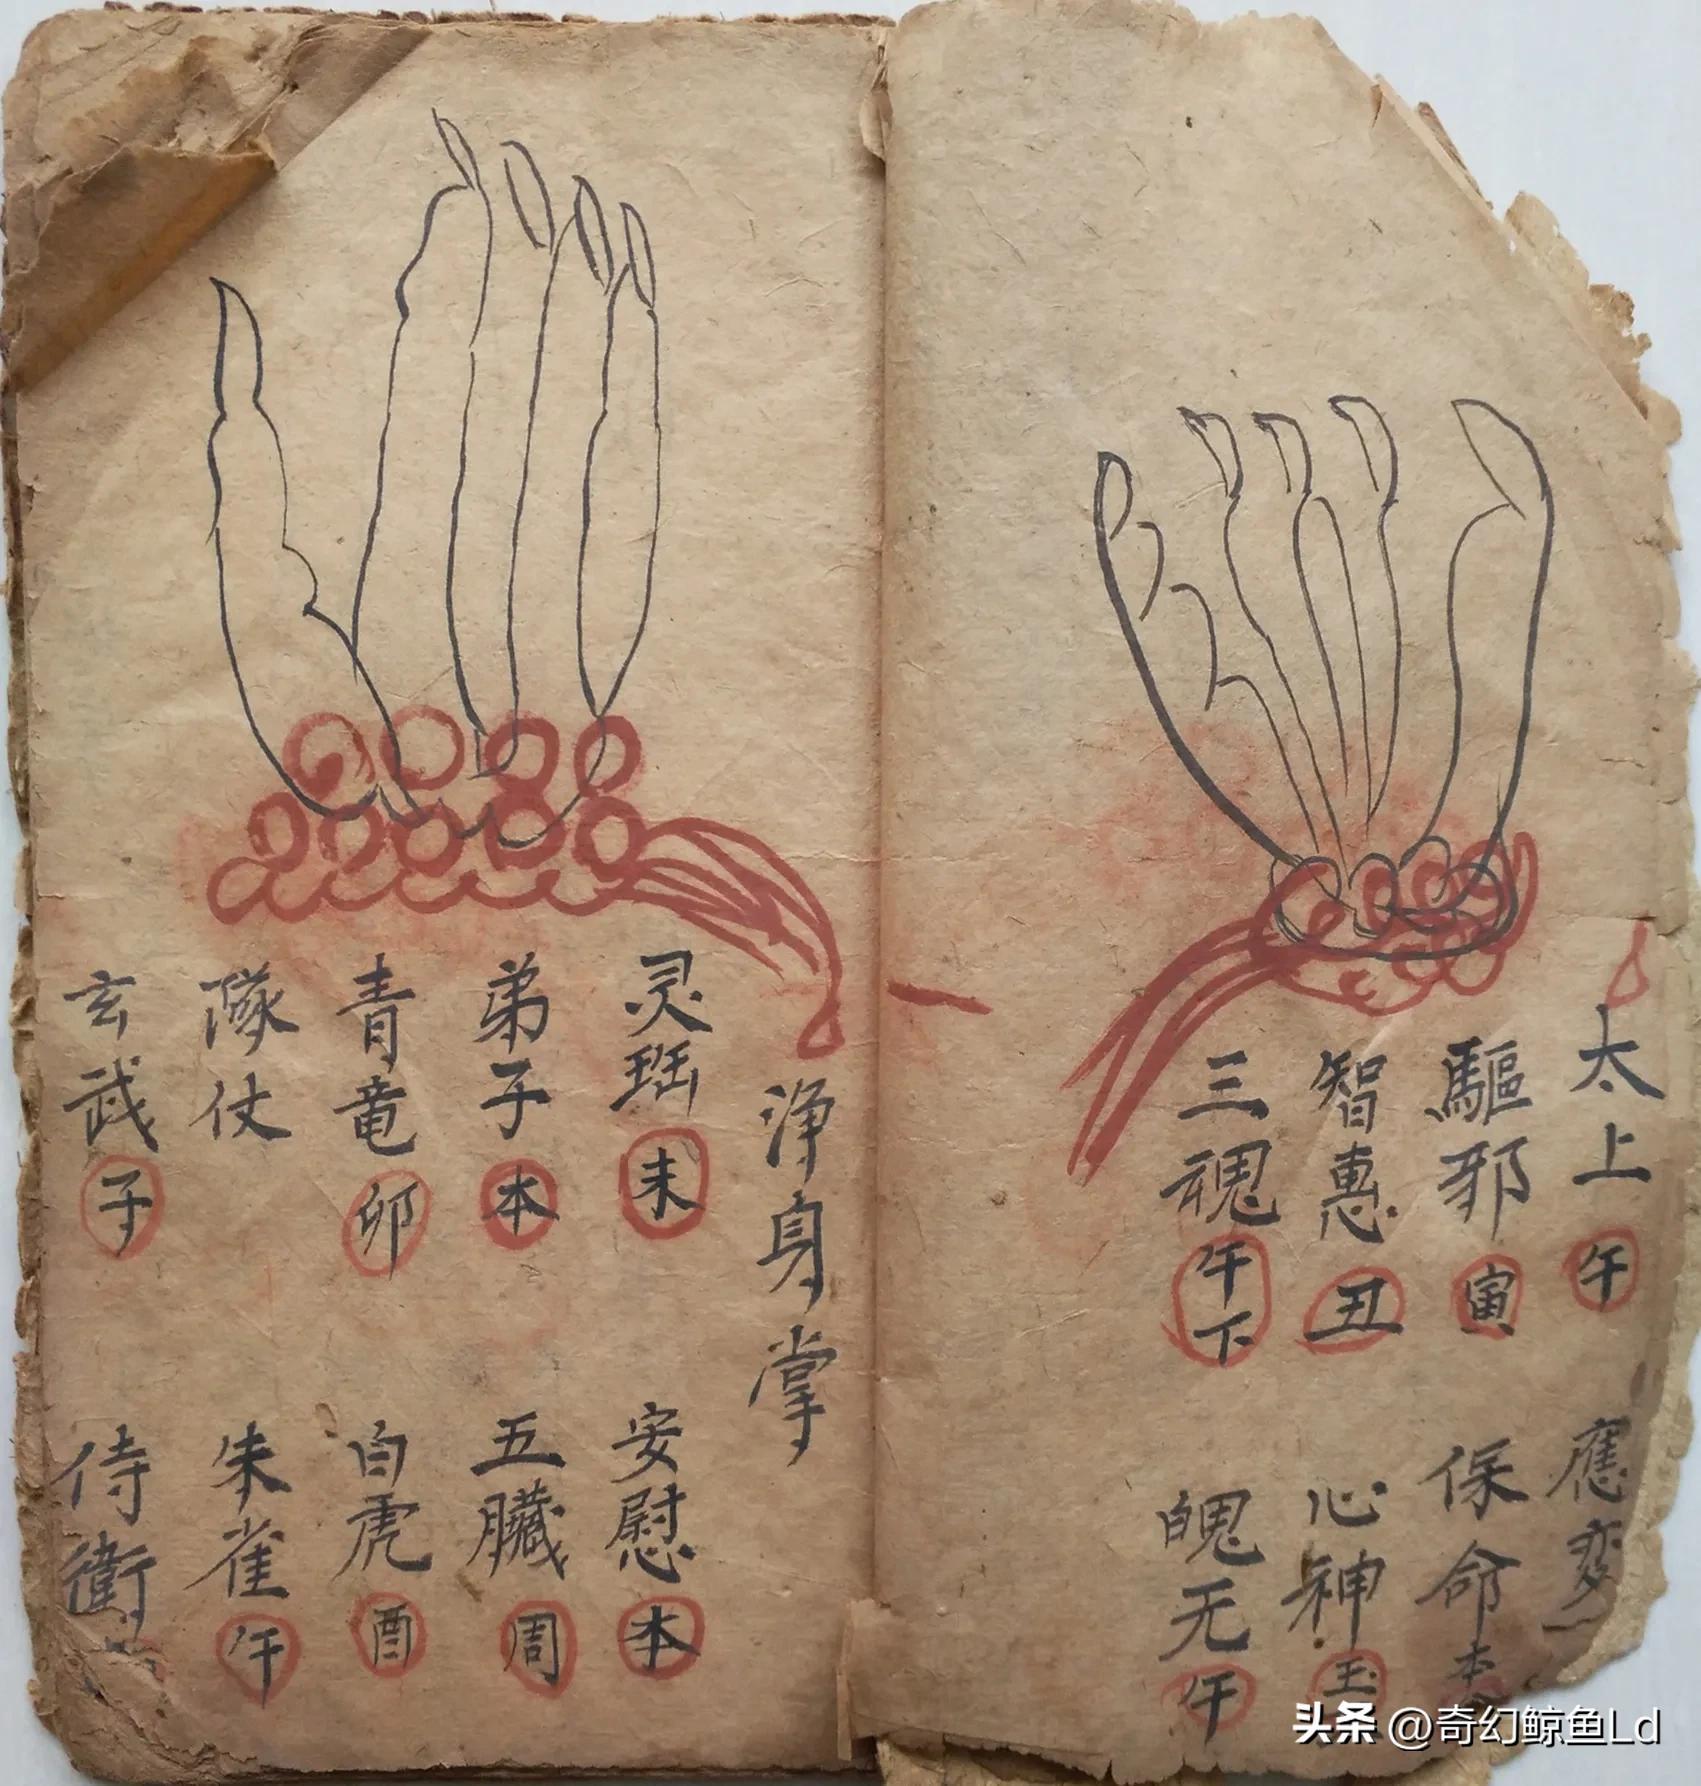 太上午應変
驅邪寅保命本
智惠丑心神玉
三魂午下魄无午
浄身掌
灵珤未安慰本
弟子本五臟周
青竜卯白虎酉
隊仗朱雀午
玄武子侍衛
头条 @奇幻鲸鱼Ld